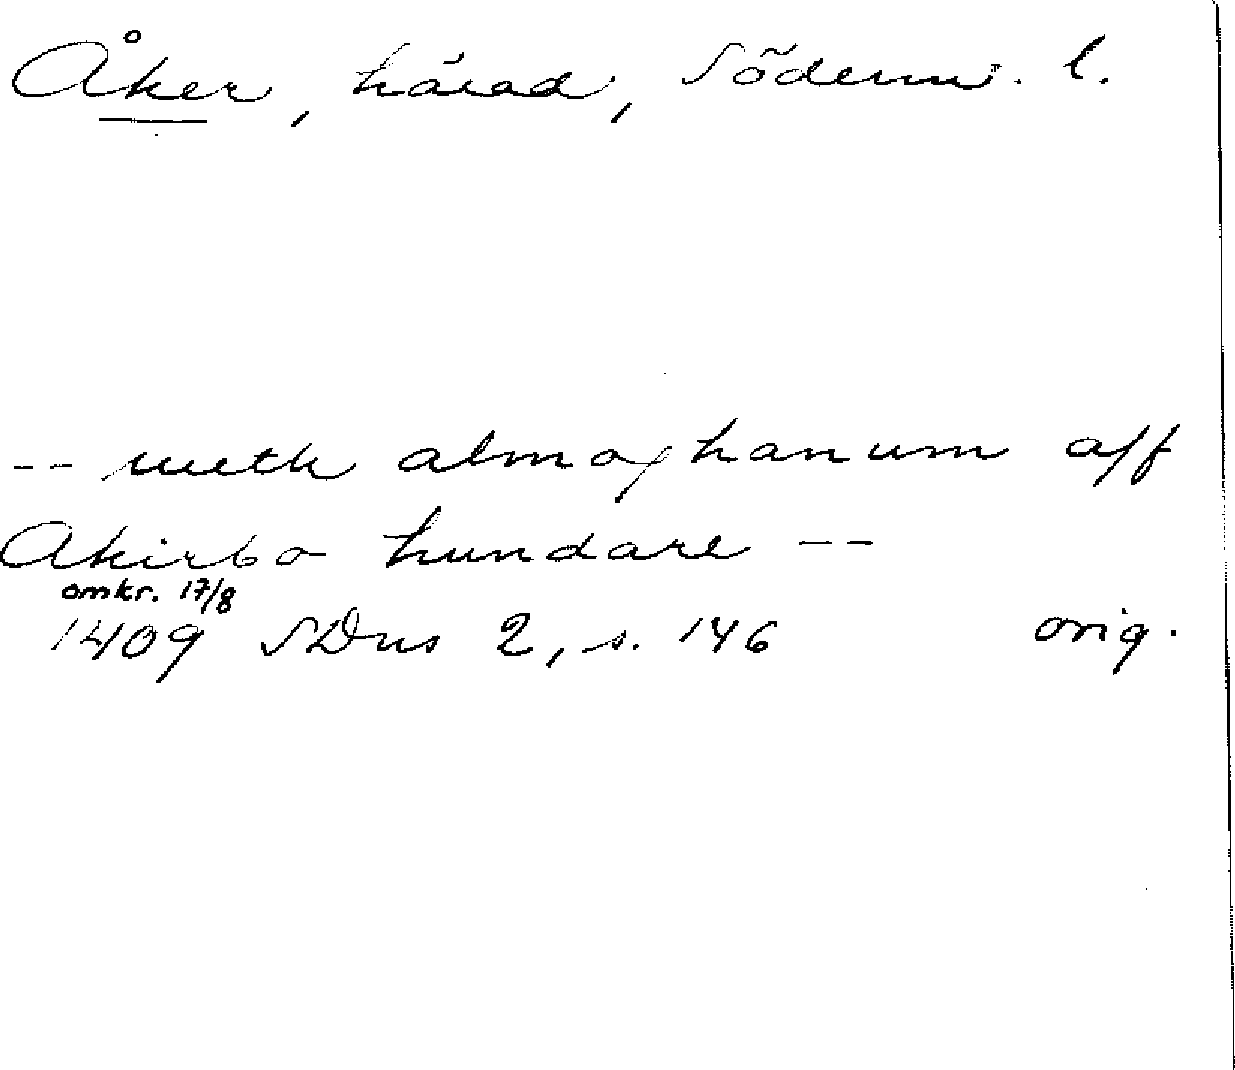 Åker, härad, Söderm. l.
-- meth almoghanum aff
Akirbo hundare --
omkr. 17/8
1409 SDns 2, s. 146 orig.